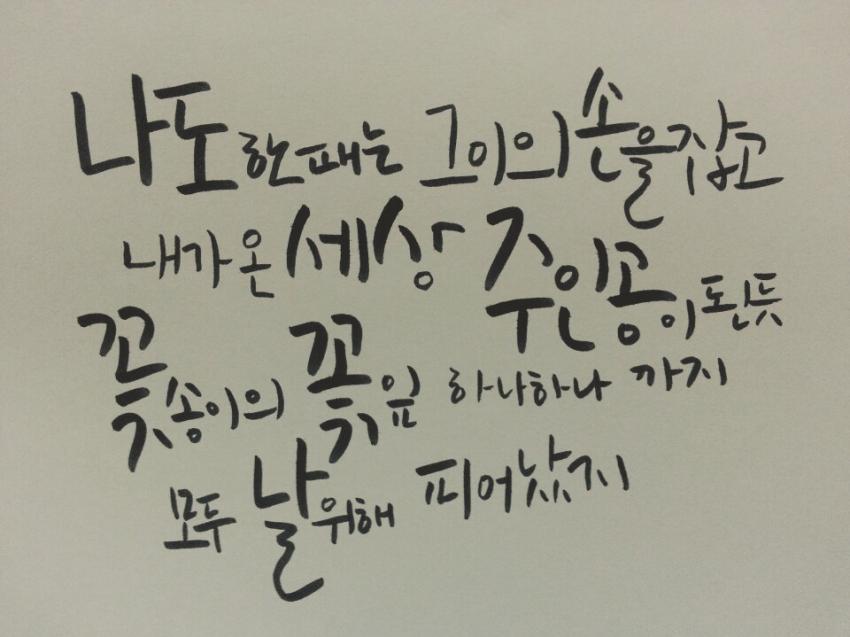 나도 한때는 그이의 손을 잡고
내가 온 세상 주인공이 된 듯
꽃송이의 꽃잎 하나하나 까지
모두 날 위해 피어났지